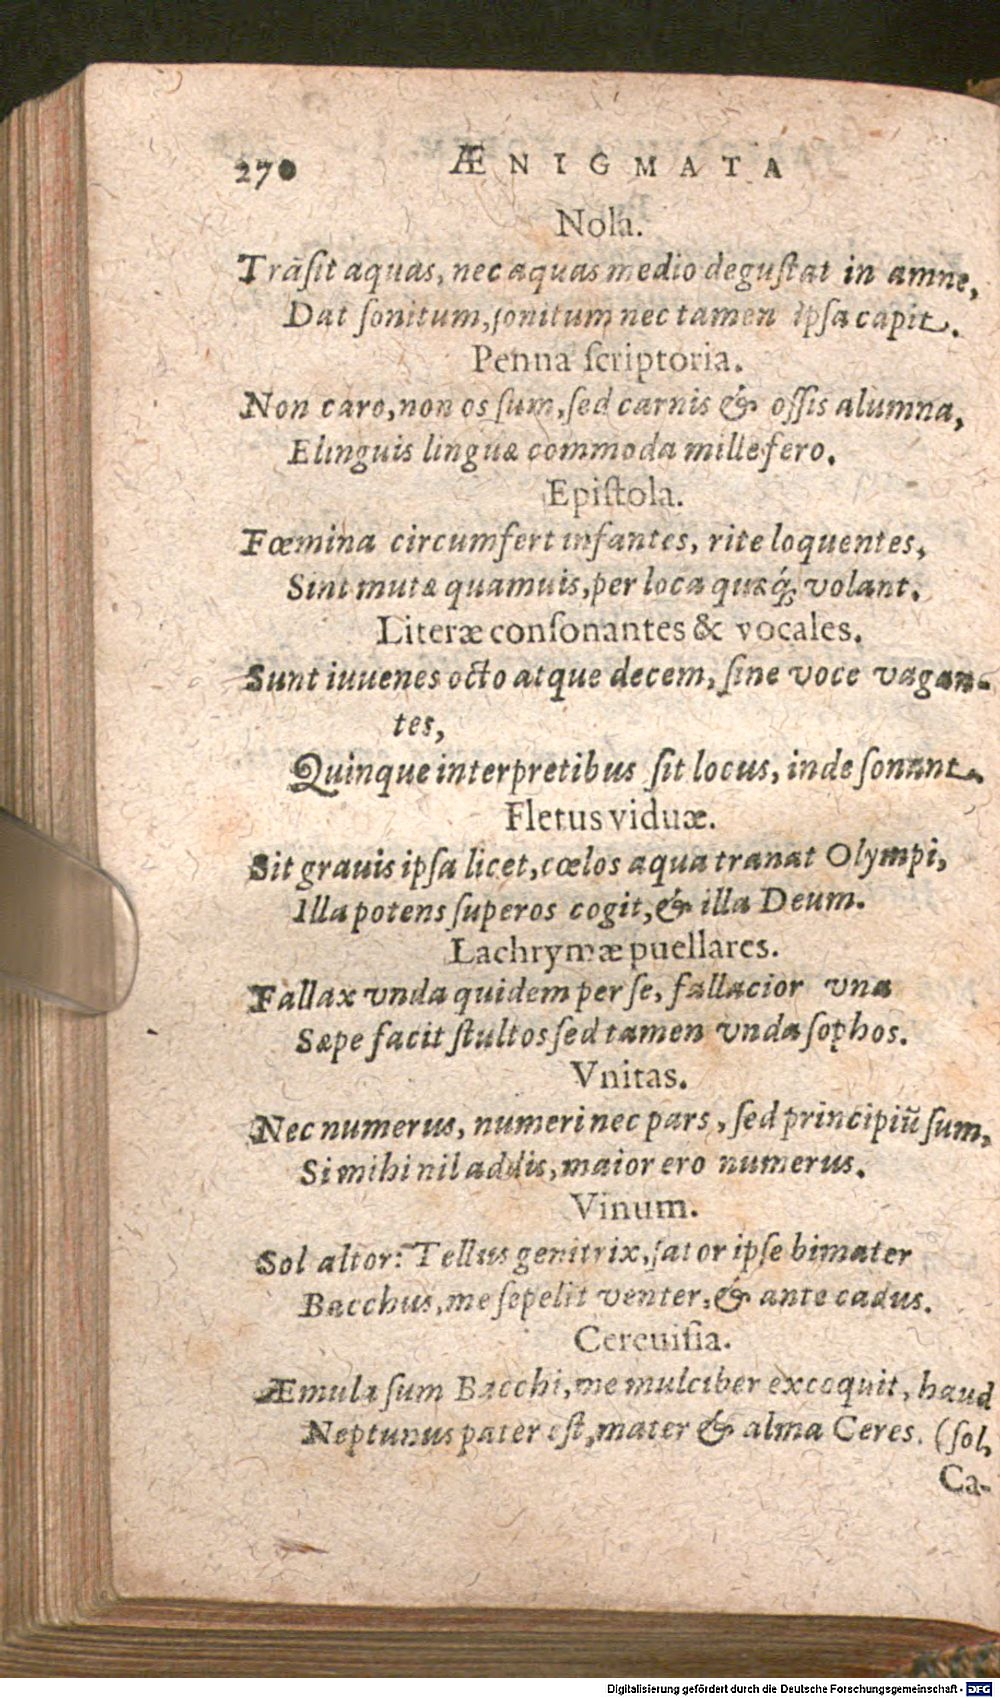 270 ÆNIGMATA
Nola.
Trãſit aquas, nec aquas medio deguſtat in amne,
Dat ſonitum, ſonitum nec tamen ipſa capit.
Penna ſcriptoria.
Non caro, non os ſum, ſed carnis & oſſis alumna,
Elinguis linguæ commoda mille fero.
Epiſtola.
Fœmina circumfert infantes, rite loquentes,
Sint mutæ quamuis, per loca quæq́; volant.
Literæ conſonantes & vocales.
Sunt iuuenes octo atque decem, ſine voce vagan-
tes,
Quinque interpretibus ſit locus, inde ſonant.
Fletus viduæ.
Sit grauis ipſa licet, cœlos aqua tranat Olympi,
Illa potens ſuperos cogit, & illa Deum.
Lachrymæ puellares.
Fallax vnda quidem per ſe, fallacior vna
Sæpe facit ſtultos ſed tamen vnda ſophos.
Vnitas.
Nec numerus, numeri nec pars, ſed principiũ ſum,
Si mihi nil addis, maior ero numerus.
Vinum.
Sol altor: Tellus genitrix, ſator ipſe bimater
Bacchus, me ſepelit venter, & ante cadus.
Cereuiſia.
Æmula ſum Bacchi, me mulciber excoquit, haud
Neptunus pater eſt, mater & alma Ceres. (ſol,
Ca-
Digitalisierung gefördert durch die Deutsche Forschungsgemeinschaft - DFG